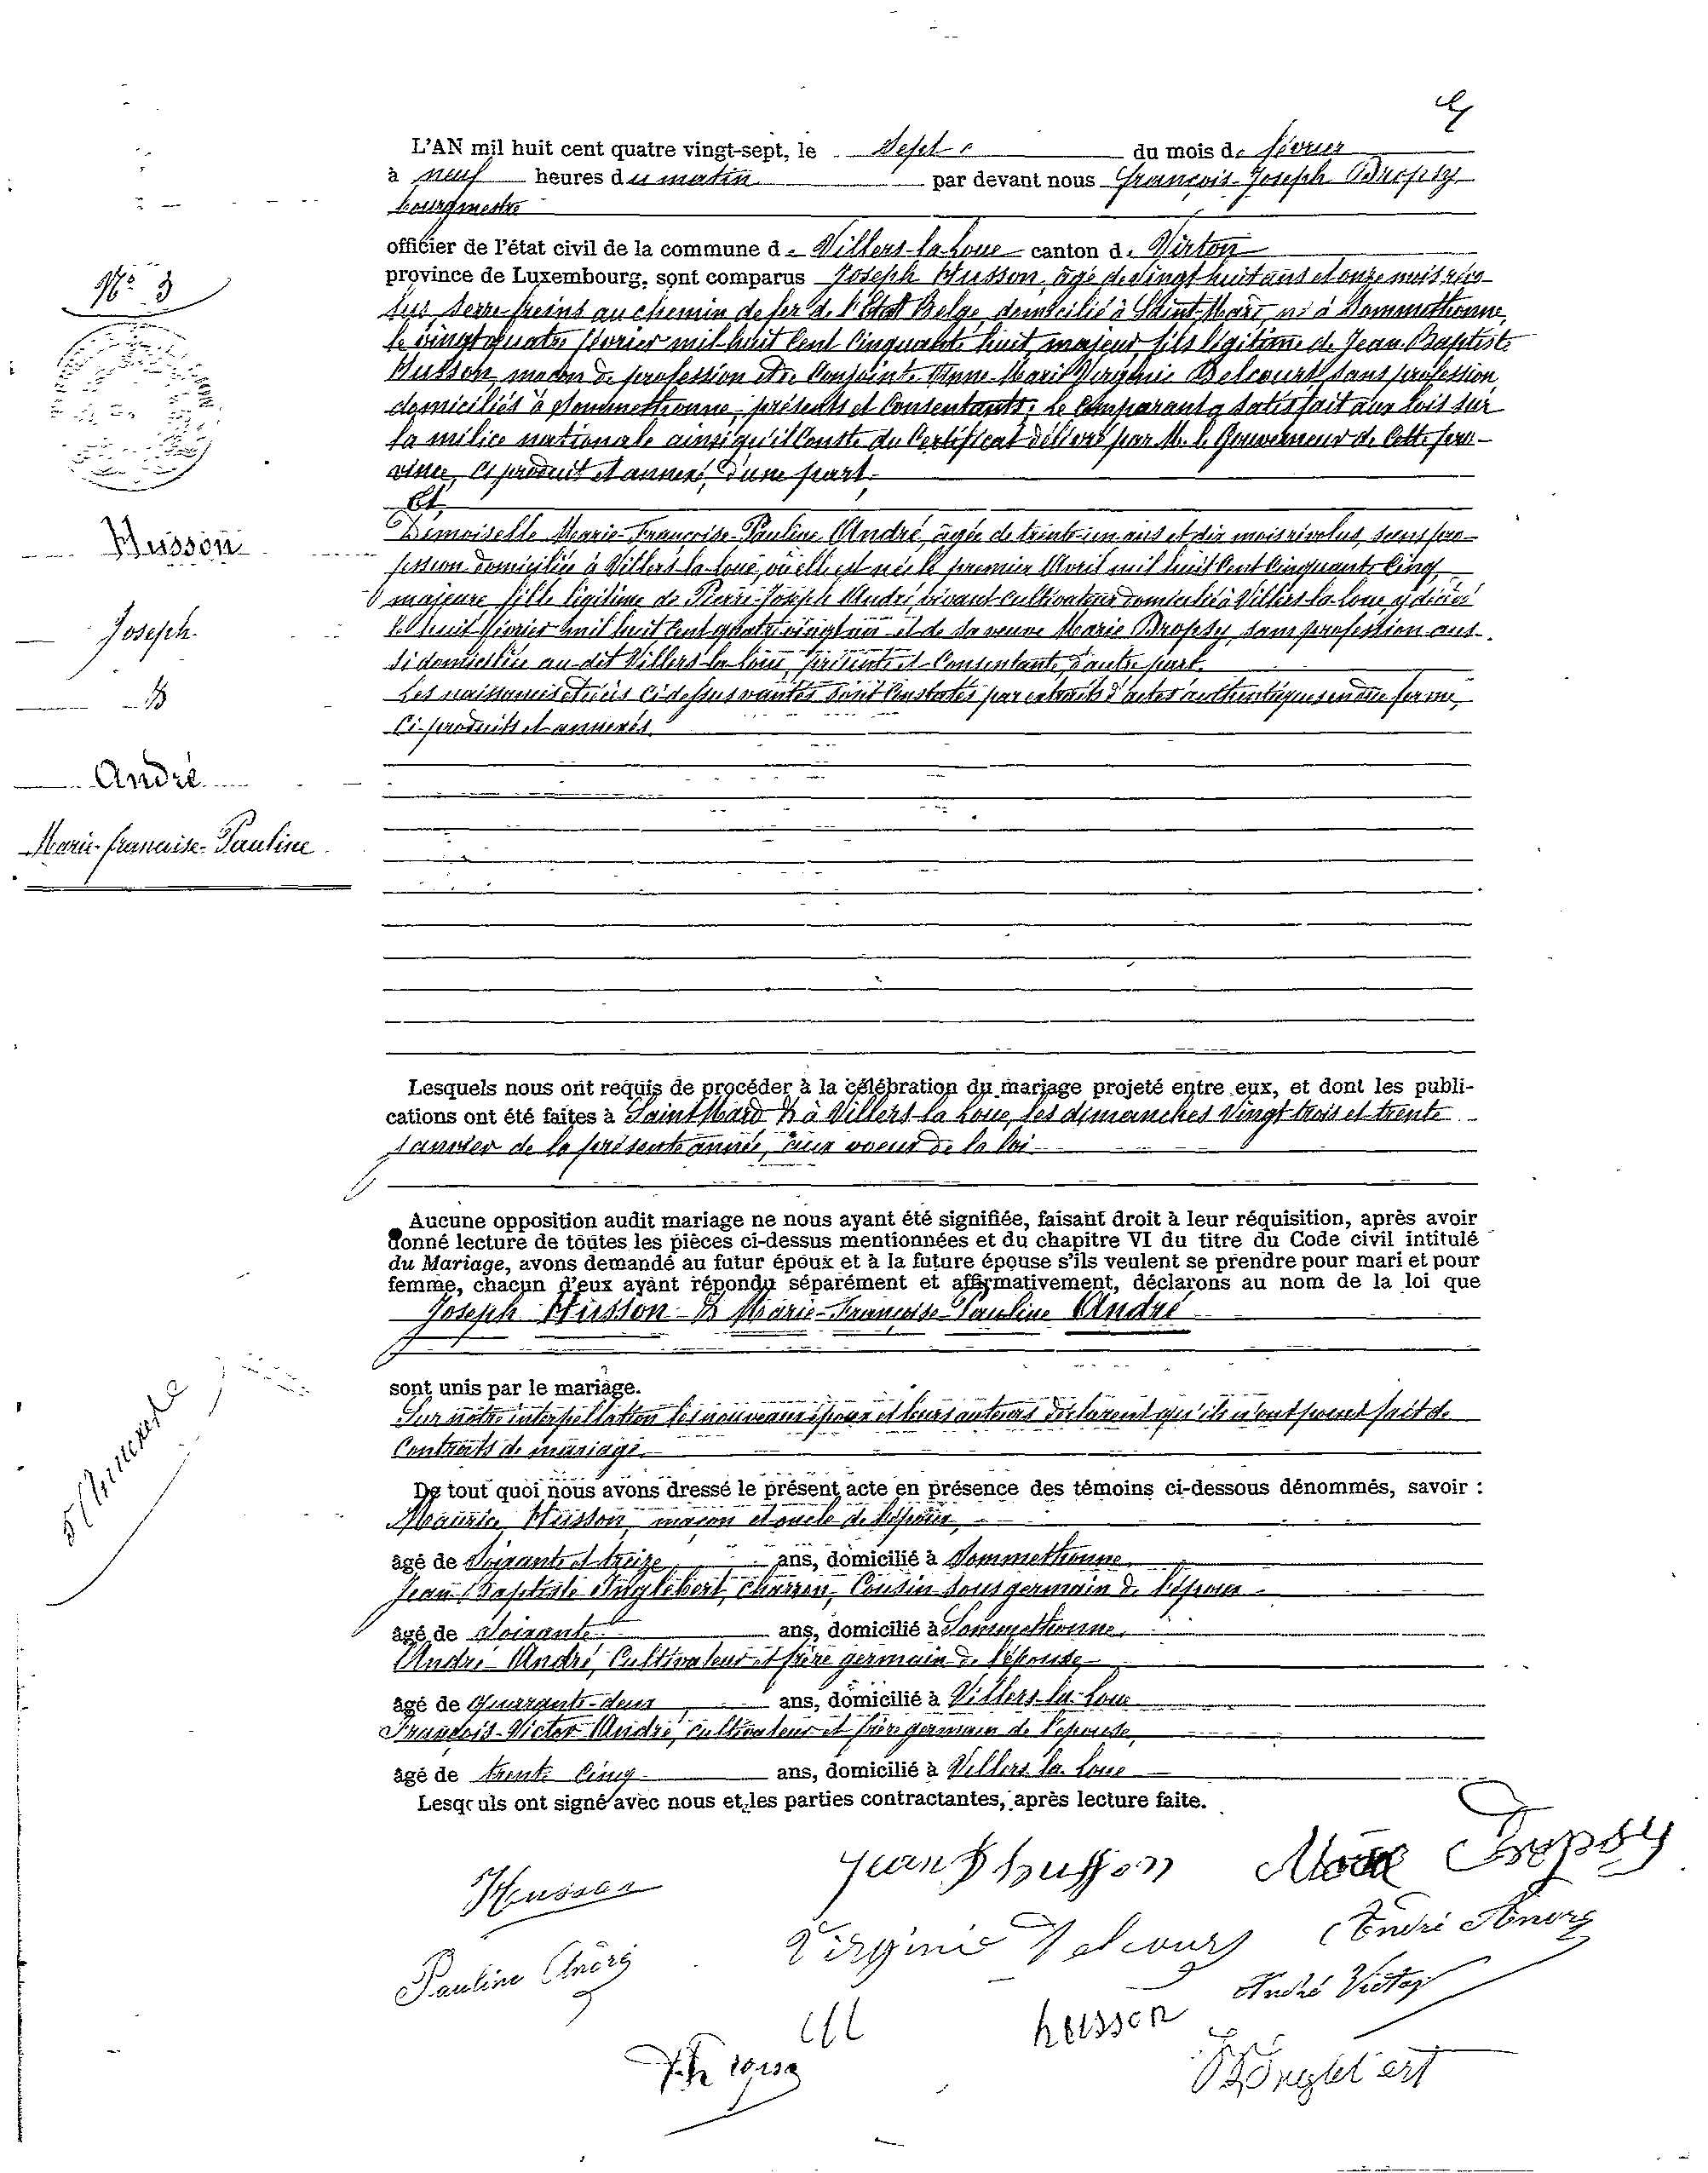 L'AN mil huit cent quatre vingt-sept, le sept du mois de février
à neuf heures du matin par devant nous François-Joseph Dropsy
bourgmestre
officier de l'état civil de la commune de Villers-la-Loue canton de Virton
province de Luxembourg, sont comparus Joseph Husson, âgé de vingt huit ans et onze mois révo-
lus, serre-freins au chemin de fer de l'Etat Belge, domicilié à Saint-Mard, né à Sommethonne,
le vingt quatre février mil huit cent cinquante huit, majeur, fils légitime de Jean-Baptiste
Husson, maçon de profession et de conjointe Anne-Marie Virginie Delcourt, sans profession,
domiciliés à Sommethonne, présents et consentants; le comparant a satisfait aux lois sur
la milice nationale ainsi qu'il conste du certificat délivré par M. le Gouverneur de cette pro-
vince, ci produit et annexé, d'une part.
Et
Demoiselle Marie-Françoise-Pauline André, âgée de trente-un ans et dix mois révolus, sans pro-
fession domiciliée à Villers-la-Loue, où elle est née le premier Avril mil huit cent cinquante cinq,
majeure fille légitime de Pierre-Joseph André, vivant cultivateur domicilié à Villers-la-Loue, y décédé
le huit février mil huit cent quatre vingt un et de sa veuve Marie Dropsy, sans profession aus-
si domiciliée au dit Villers-la-Loue, présente et consentante, d'autre part.
Les naissances et décès ci-dessus vantés sont constatés par extraits d'actes authentiques en due forme,
ci-produits et annexés.
N° 3
Husson
Joseph
&
André
Marie-françoise-Pauline
Lesquels nous ont requis de procéder à la célébration du mariage projeté entre eux, et dont les publi-
cations ont été faites à Saint Mard & à Villers-la-Loue, les dimanches vingt-trois et trente
Janvier de la présente année, aux voeux de la loi
Aucune opposition audit mariage ne nous ayant été signifiée, faisant droit à leur réquisition, après avoir
donné lecture de toutes les pièces ci-dessus mentionnées et du chapitre VI du titre du Code civil intitulé
du Mariage, avons demandé au futur époux et à la future épouse s'ils veulent se prendre pour mari et pour
femme, chacun d'eux ayant répondu séparément et affirmativement, déclarons au nom de la loi que
Joseph Husson & Marie-Françoise-Pauline André
sont unis par le mariage.
Sur notre interpellation les nouveaux époux et leurs auteurs déclarent qu'ils n'ont point fait de
Contrats de mariage.
De tout quoi nous avons dressé le présent acte en présence des témoins ci-dessous dénommés, savoir :
Maurice Husson, maçon et oncle de l'époux,
âgé de Soixante et treize ans, domicilié à Sommethonne,
Jean-Baptiste Inglebert, charron, Cousin sous germain de l'époux
âgé de Soixante ans, domicilié à Sommethonne,
André André, Cultivateur et frère germain de l'épouse
âgé de quarante-deux ans, domicilié à Villers-la-Loue
François-Victor André, cultivateur et frère germain de l'épouse,
âgé de trente cinq ans, domicilié à Villers-la-Loue
Lesquels ont signé avec nous et les parties contractantes, après lecture faite.
5 Annexes
Husson Jean B husson Marie Dropsy
Pauline André Virginie Delcourt André André
André Victor
husson
Inglebert